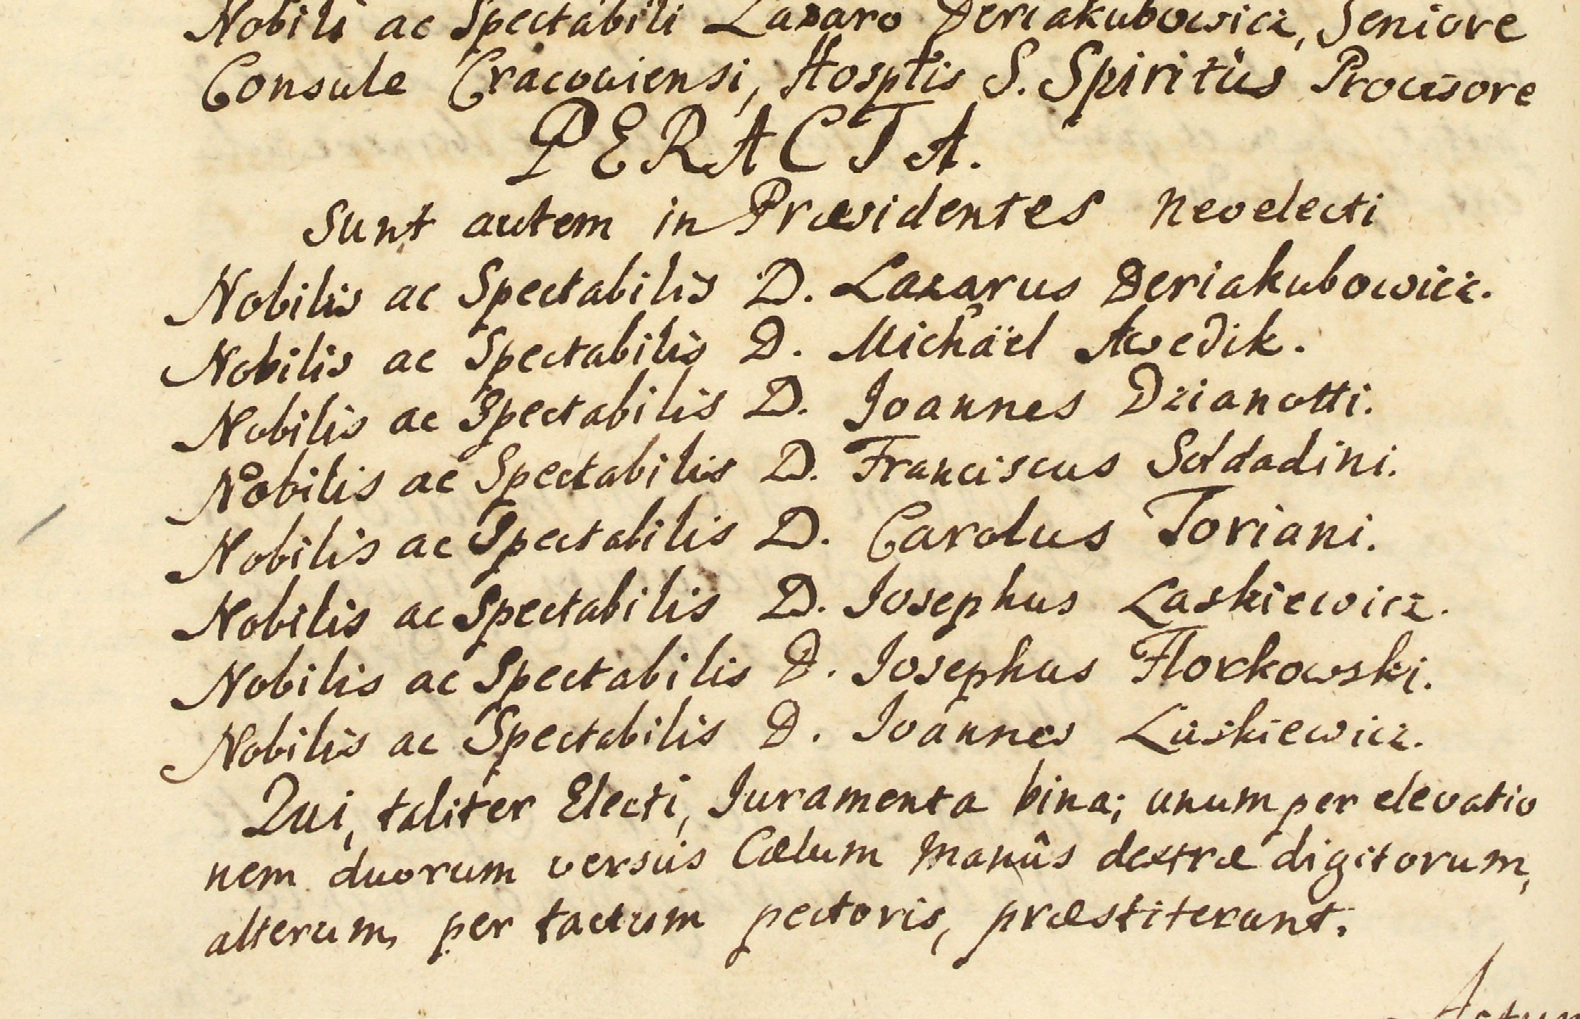 Nobili ac Spectabili Lazaro Deriakubowicz, Seniore
Consule Cracoviensi, Hosptis S. Spiritûs Provisore
PERACTA.
Sunt autem in Præsidentes neoelecti
Nobilis ac Spectabilis D. Lazarus Deriakubowicz.
Nobilis ac Spectabilis D. Michäel Awedik.
Nobilis ac Spectabilis D. Joannes Dzianotti.
Nobilis ac Spectabilis D. Franciscus Soldadini.
Nobilis ac Spectabilis D. Carolus Toriani.
Nobilis ac Spectabilis D. Josephus Laskiewicz.
Nobilis ac Spectabilis D. Josephus Florkowski.
Nobilis ac Spectabilis D. Joannes Laskiewicz.
Qui, taliter Electi, Juramenta bina; unum per elevatio
nem duorum versus Cœlum manûs dextræ digitorum,
alterum, per tactum pectoris, præstiterunt.